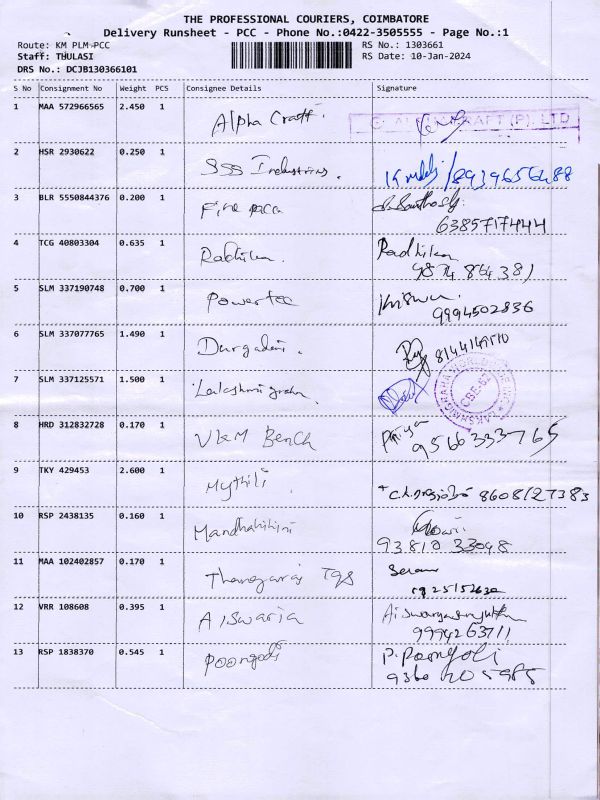 THE PROFESSIONAL COURIERS, COIMBATORE
Delivery Runsheet - PCC - Phone No.:0422-3505555 - Page No.:1
Route: KM PLM-PCC RS No.: 1303661
Staff: THULASI RS Date: 10-Jan-2024
DRS No.: DCJB130366101
S No Consignment No Weight PCS Consignee Details Signature
1 MAA 572966565 2.450 1 Alpha Craft.
2 HSR 2930622 0.250 1 SSS Industries. 8939656488
3 BLR 5550844376 0.200 1 Fine
6385717444
4 TCG 40803304 0.635 1 Radhika. Radhika
9874 864 381
5 SLM 337190748 0.700 1 Powertec
9994502836
6 SLM 337077765 1.490 1 8144149510
7 SLM 337125571 1.500 1
8 HRD 312832728 0.170 1 VKM Bench Priya
9566333765
9 TKY 429453 2.600 1 Mythili. 8608127383
10 RSP 2438135 0.160 1
93810 33098
11 MAA 102402857 0.170 1 Thangaraj Tgs
12 VRR 108608 0.395 1 Aiswaria
9994263711
13 RSP 1838370 0.545 1 Poongodi P. Poongodi